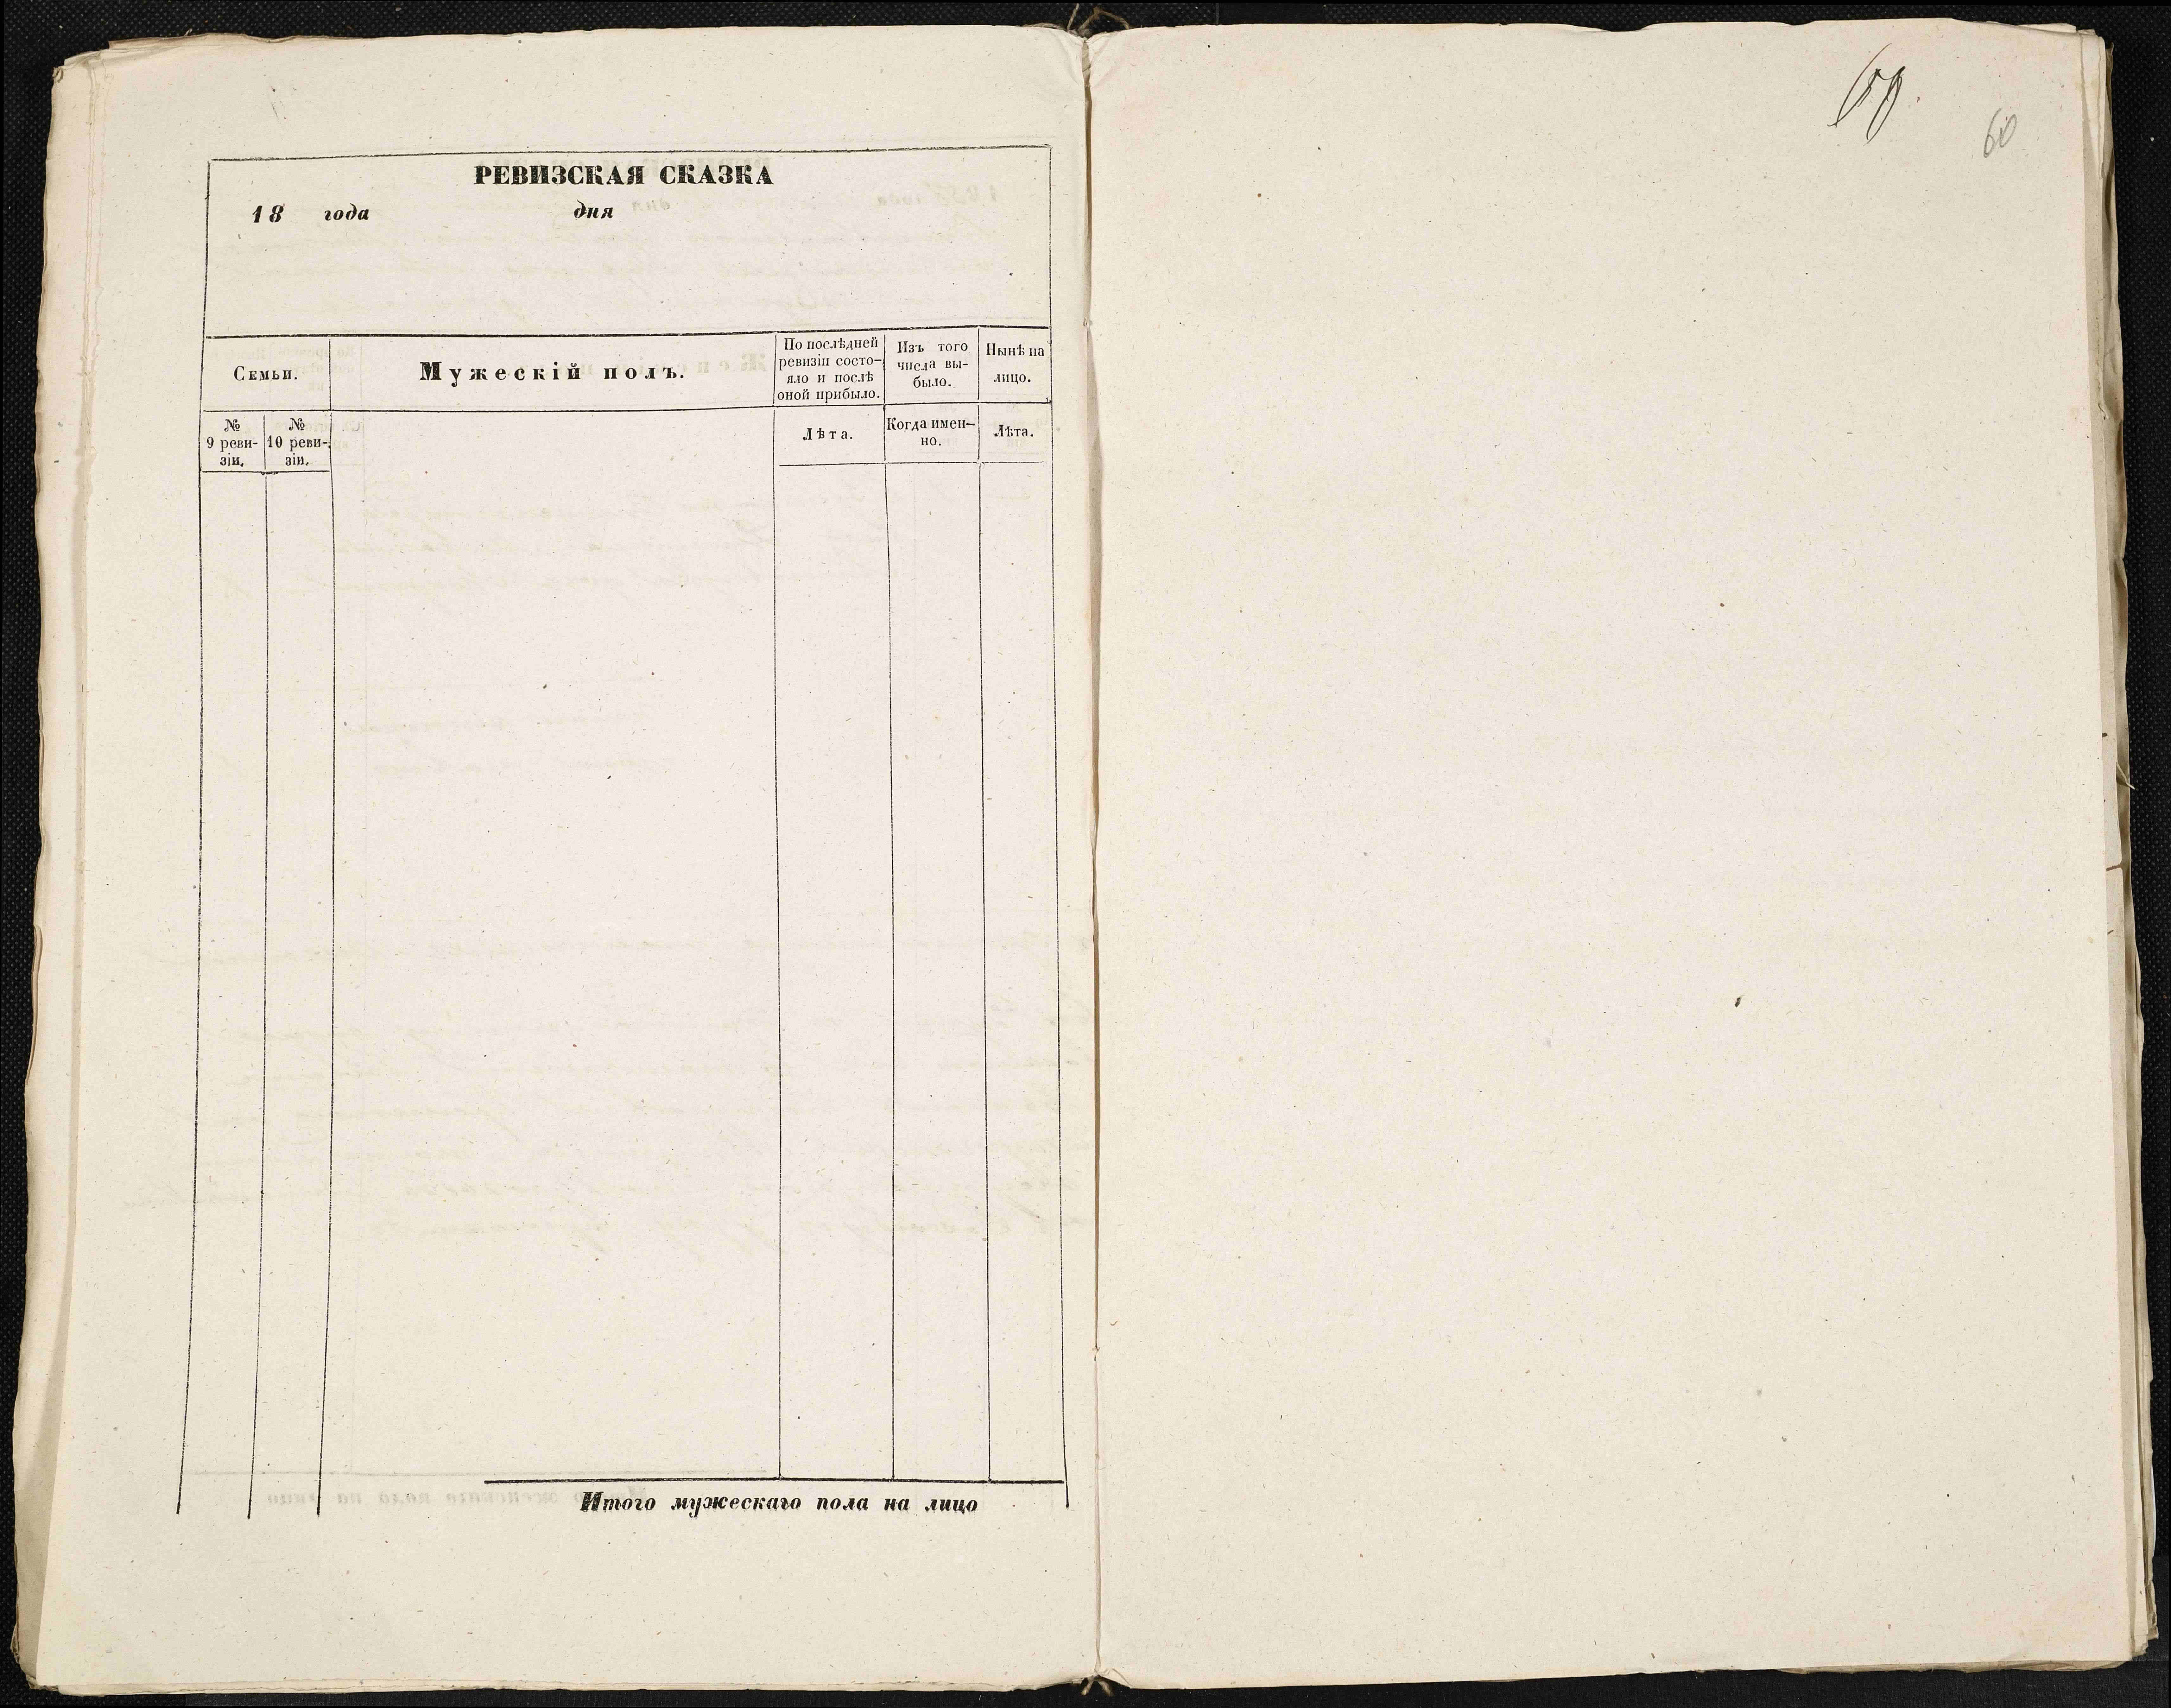 РЕВИЗСКАЯ СКАЗКА
18 года дня
Семьи.
Мужескій полъ.
По послѣдней
ревизіи состо-
яло и послѣ
оной прибыло.
Изъ того
числа вы-
было.
Нынѣ на
лицо.
№
9 реви-
зіи.
№
10 реви-
зіи.
Лѣта.
Когда имен-
но.
Лѣта.
Итого мужескаго пола на лицо
60